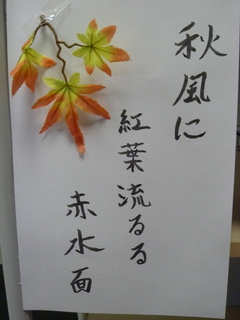 秋風に
紅葉流るる
赤水面